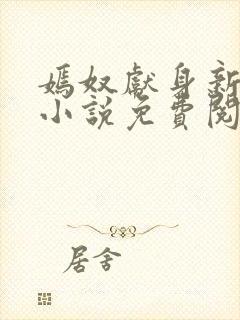 嫣奴獻身新
小說免費閱
居舍